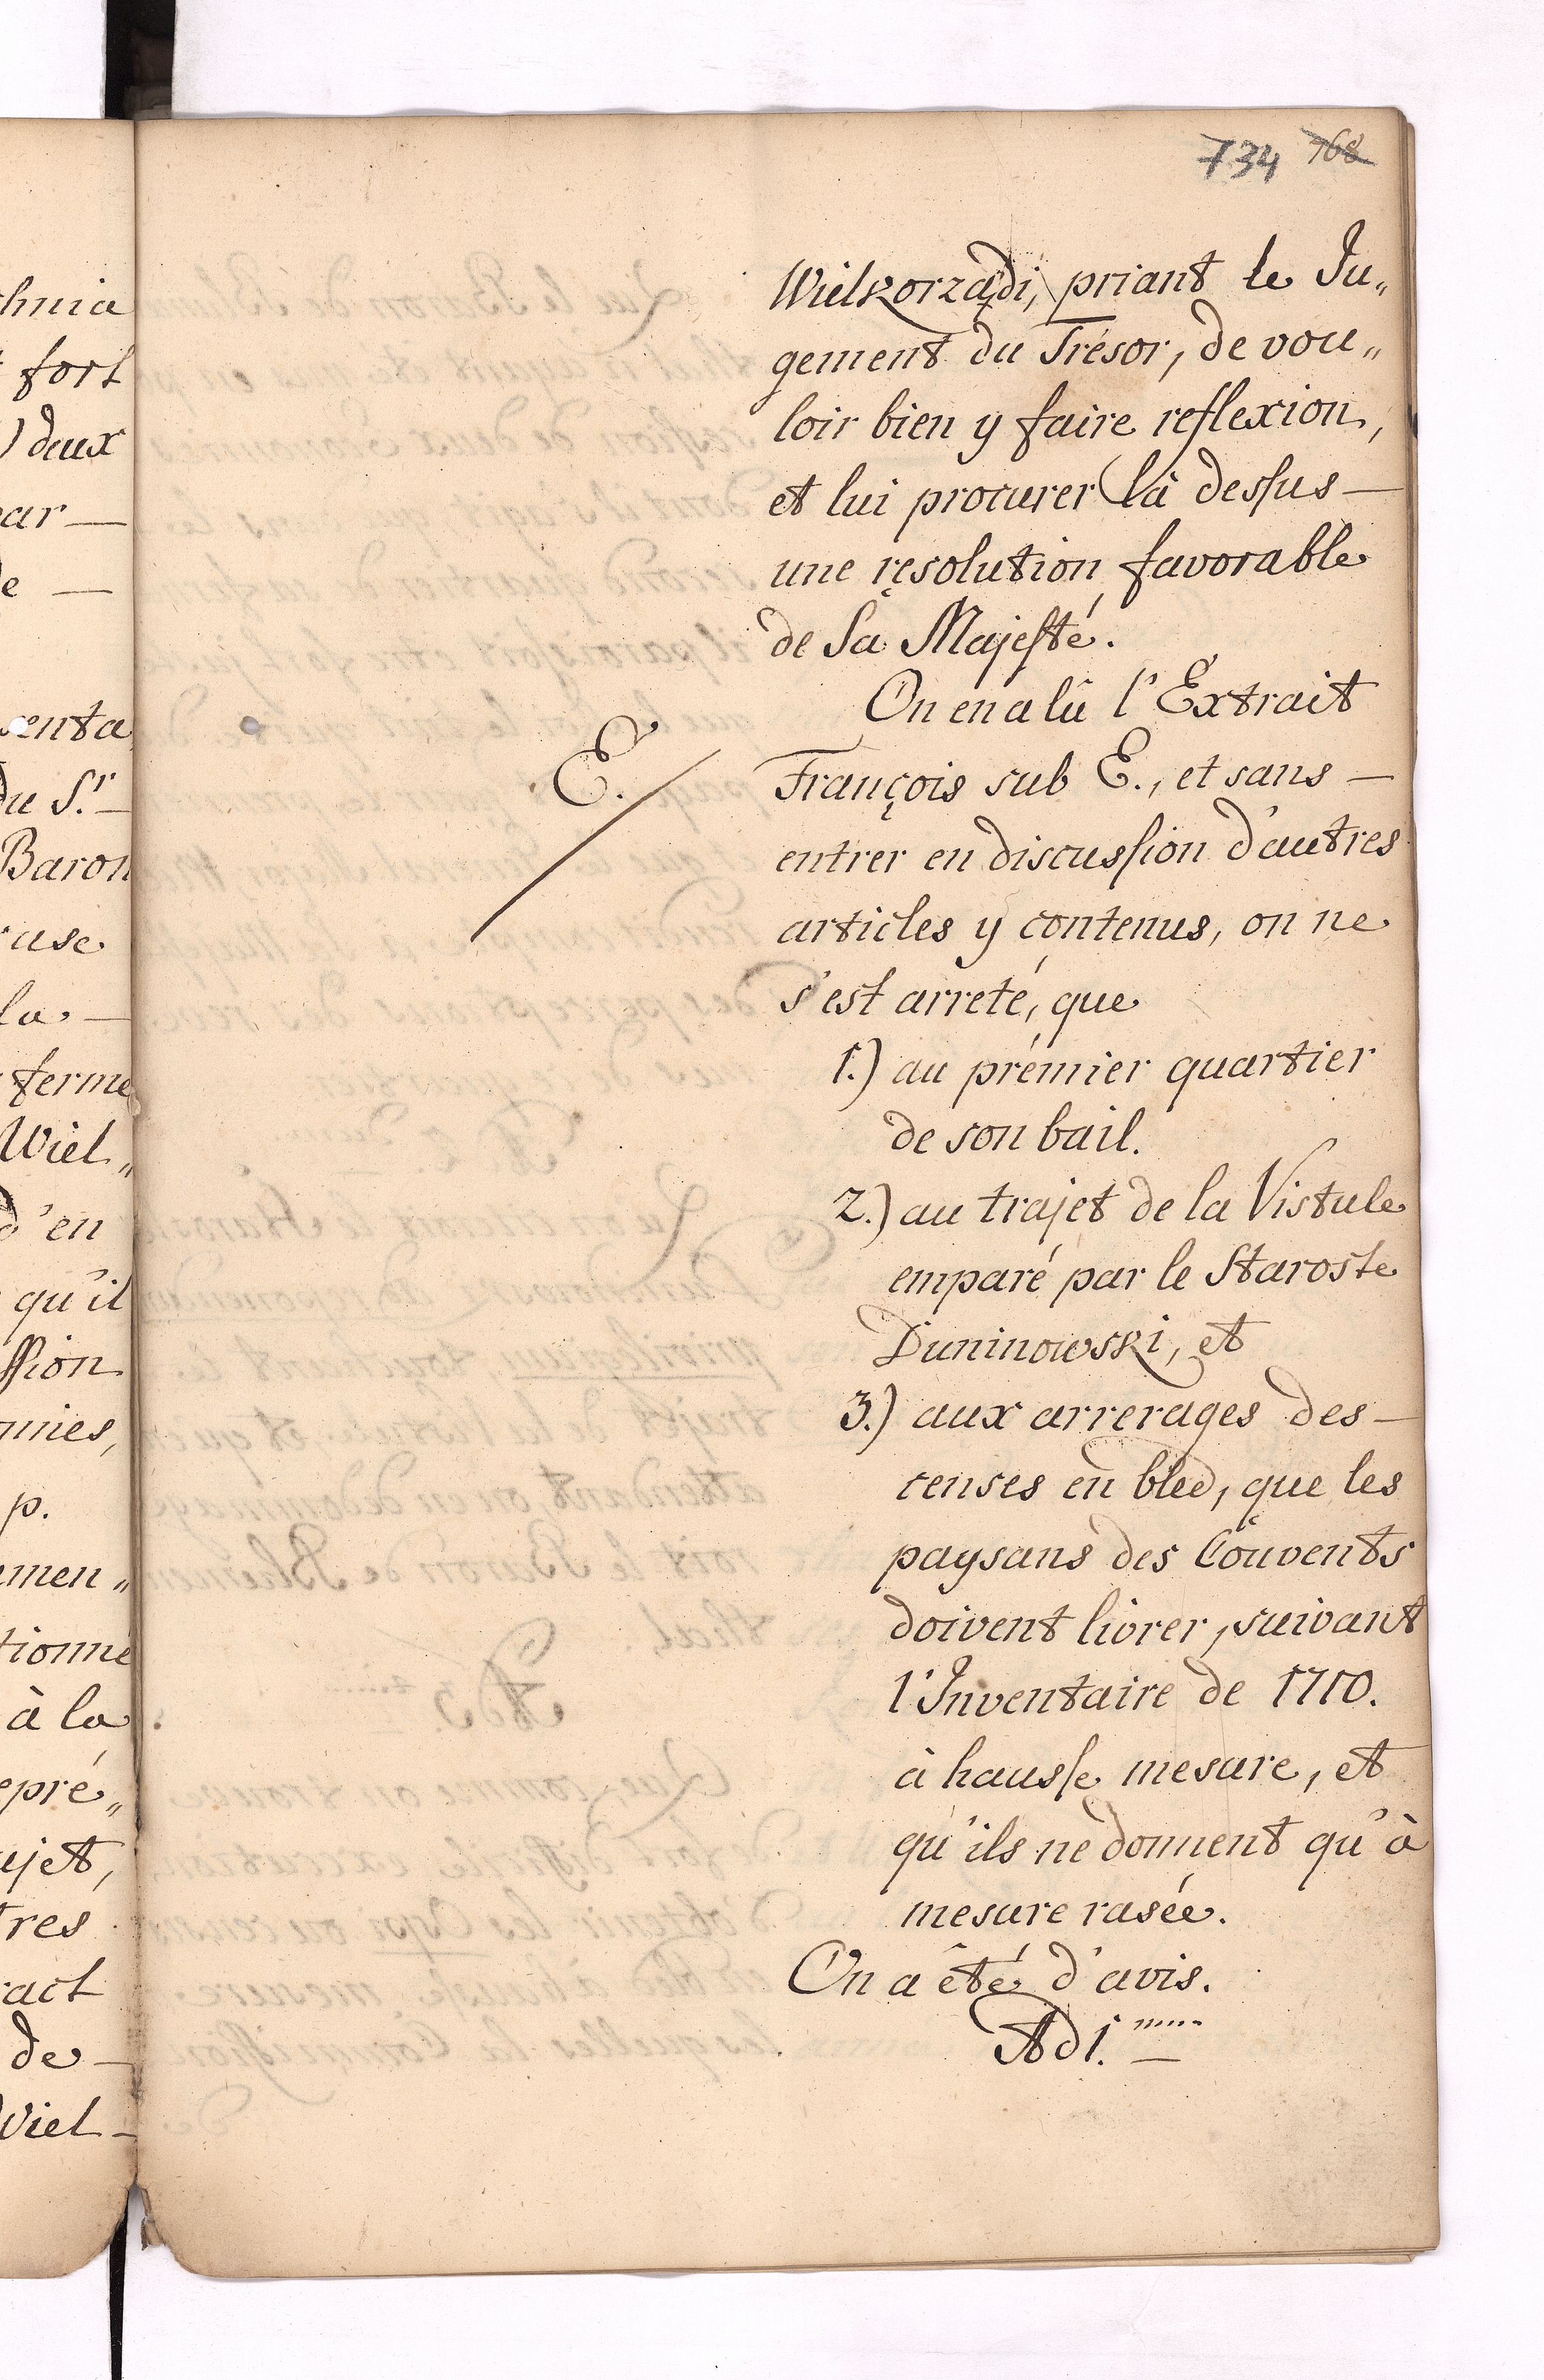 734 768
Wielkorządi, priant le Ju„
gement du Trésor, de vou„
loir bien y faire reflexion,
et lui procurer là dessus —
une resolution favorable
de Sa Majesté.
On en a lû l'Extrait
E.
François sub E., et sans —
entrer en discussion d'autres
articles y contenus, on ne
s'est arreté, que
1.) au prémier quartier
de son bail.
2.) au trajet de la Vistule
emparé par le Staroste
Duninowski, et
3.) aux arrerages des —
censes en bled, que les
paysans des Couvents
doivent livrer, suivant
l'Inventaire de 1710.
à hausse mesure, et
qu'ils ne donnent qu'à
mesure rasée.
On a été d'avis.
Ad 1.
hnia
fort
) deux
ar —
e —
senta
du S.r —
Baron
use
la —
ferme
Wiel„
d'en
qu'il
ssion
mies,
p.
men„
tionné
à la
epré„
ujet,
tres
act
de —
Wiel —